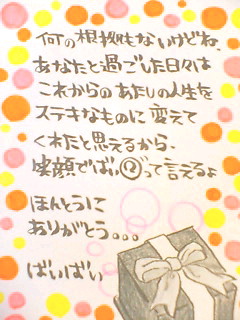 何の根拠もないけどね、
あなたと過ごした日々は
これからのあたしの人生を
ステキなものに変えて
くれたと思えるから、
笑顔でばい②って言えるよ
ほんとうに
ありがとう...
ばいばい